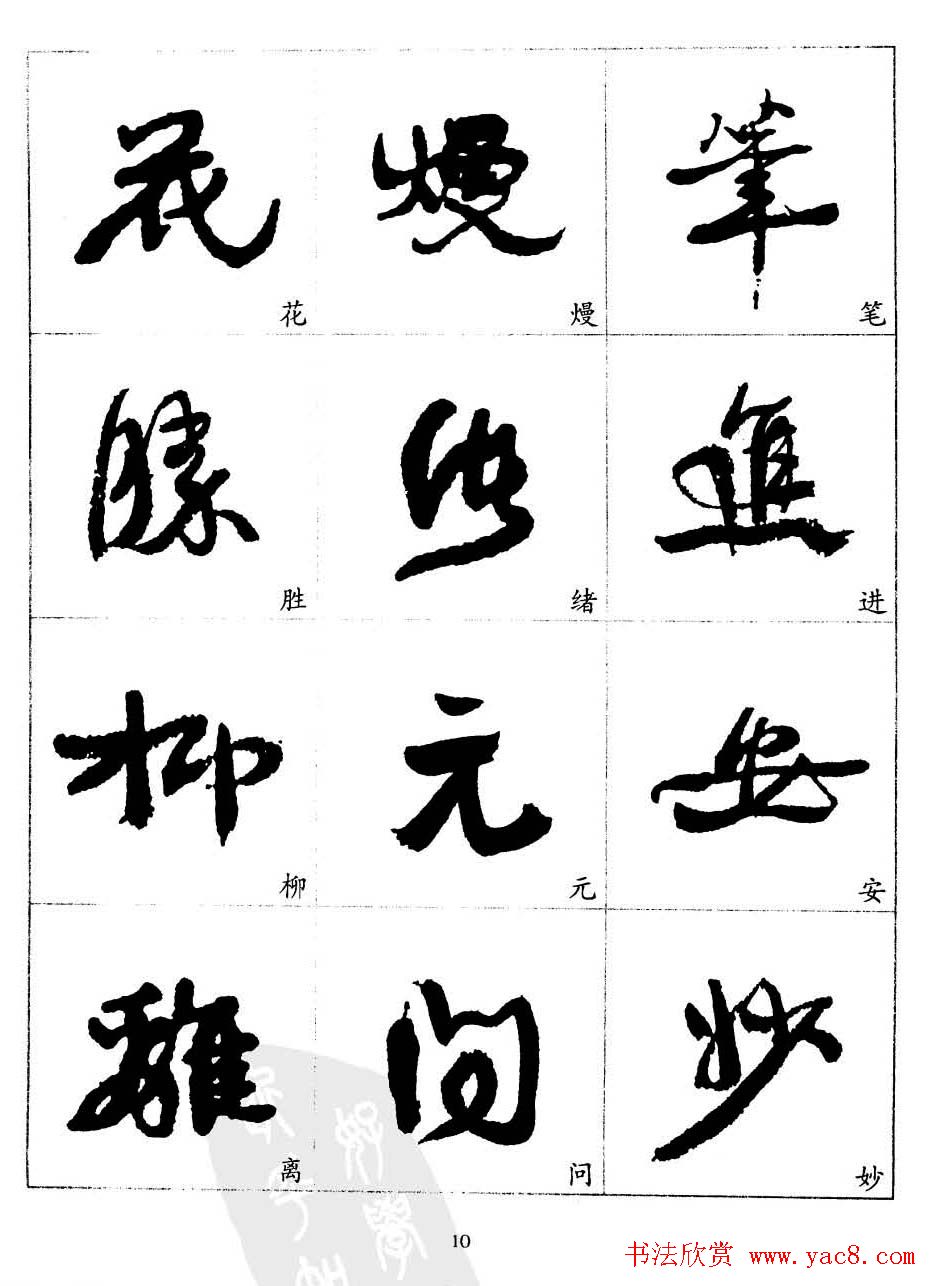 花 熳 筆
花 熳 笔
勝 緒 進
胜 绪 进
柳 元 安
柳 元 安
離 問 妙
离 问 妙
10
书法欣赏 www.yac8.com